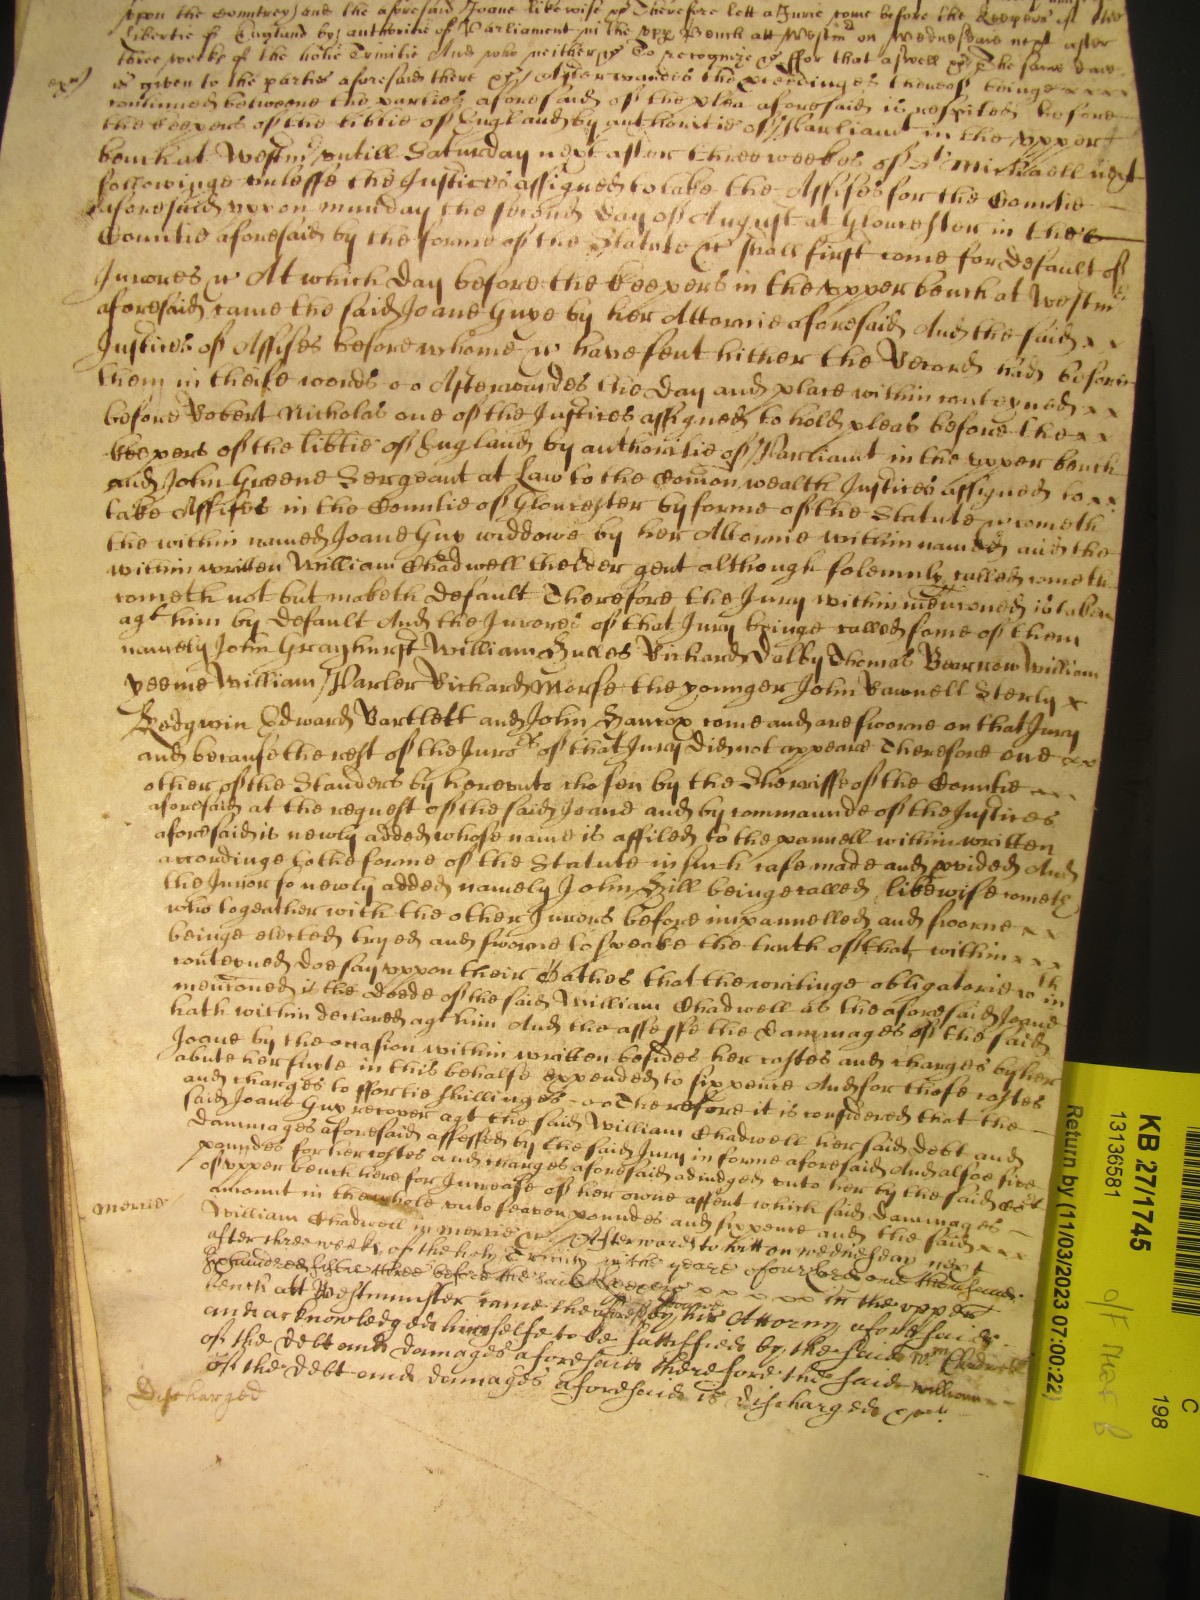 upon the Countrey and the aforesaid Joane likewise &c Therefore lett a Jurie come before the Keepers of the
libertie of England by authoritie of Parliament in the upp Bench att Westm on Wednesdaie next after
three weekes of the holie Trinitie And who neither &c To recognize &c ffor that aswell &c The same daie
is given to the parties aforesaid there &c Afterwardes the proceedinges thereof beinge x x x x
continued betweene the parties aforesaid of the plea aforesaid is respited before
the keepers of the libtie of England by authoritie of Parliamt in the upper
bench at Westm untill Saturday next after three weekes of St Michaell next
followinge unlesse the Justices assigned to take the Assises for the Countie
aforesaid uppon munday the second day of August at Gloucester in the
Countie aforesaid by the forme of the Statute &c shall first come for default of
Jurores &c At which day before the keepers in the upper bench at Westm
aforesaid came the said Joane Guye by her Attornie aforesaid And the said x x
Justices of Assises before whome &c have sent hither the Record had before
them in theise words Afterwardes the day and place within conteyned x x
before Robert Nicholas one of the Justices assigned to hold pleas before the x x
keepers of the libtie of England by authoritie of Parliamt in the upper bench
and John Greene Sergeant at Law to the Comon wealth Justices assigned to x x
take Assises in the Countie of Gloucester by forme of the Statute &c cometh
the within named Joane Guy widdowe by her Attornie within named and the
within written William Chadwell thelder gent although solemnly called cometh
cometh not but maketh default Therefore the Jury within menconed is taken
agt him by default And the Jurores of that Jury beinge called some of them
namely John Grayhurst William Richard Dalby Thomas William
William Parler Richard Morse the younger John Sterly x
Kedgwin Edward Bartlett and John Hancox come and are sworne on that Jury
and because the rest of the Juros of that Jury did not appeare Therefore one x x
other of the Standers by hereunto chosen by the Sherriffe of the Countie
aforesaid at the request of the said Joane and by commaunde of the Justices
aforesaid is newly added whose name is affiled to the pannell within written
accordinge to the forme of the Statute in such case made and pvided And
the Juror so newly added namely John Hill beinge called likewise cometh
who togeather with the other Jurors before impannelled and sworne x x
beinge elected tryed and sworne to speake the truth of that within x x x
conteyned doe say uppon their Oathes that the writinge obligatorie wth in
menconed is the Deede of the said William Chadwell as the aforesaid Joane
hath within declared agt him And the assesse the dammages of the said
Joane by the occasion within written besides her costes and charges by her
about her suite in this behalfe expended to six pence And for those costes
and charges to ffortie shillinges Therefore it is considered that the
said Joane Guy recover agt the said William Chadwell her said debt and
Dammages aforesaid assessed by the said Jury in forme aforesaid And alsoe five
poundes for her costes and charges aforesaid adiudged unto her by the said Cort
of upper bench here for Increase of her owne assent which said dammages
amount in the whole unto seaven poundes and six pence and the said x x x
merrie
William Chadwell in mercie &c Afterwards to witt on wednesday next
after three weeks of the holy Trinity in the yeare of our lord one thousand
six hundred fiftie three before the said keepers x x x x x in the upper
bench att Westminster came the aforesd Joane by his Attorny aforesaid
and acknowledged himselfe to be satisfied by the said Wm Chadwell
of the debt and damages aforesaid therefore the said william
of the debt and damages aforesaid is discharged &c
Discharged
KB 27/1745
13136581
Return by (11/03/2023 07:00:22)
C
198